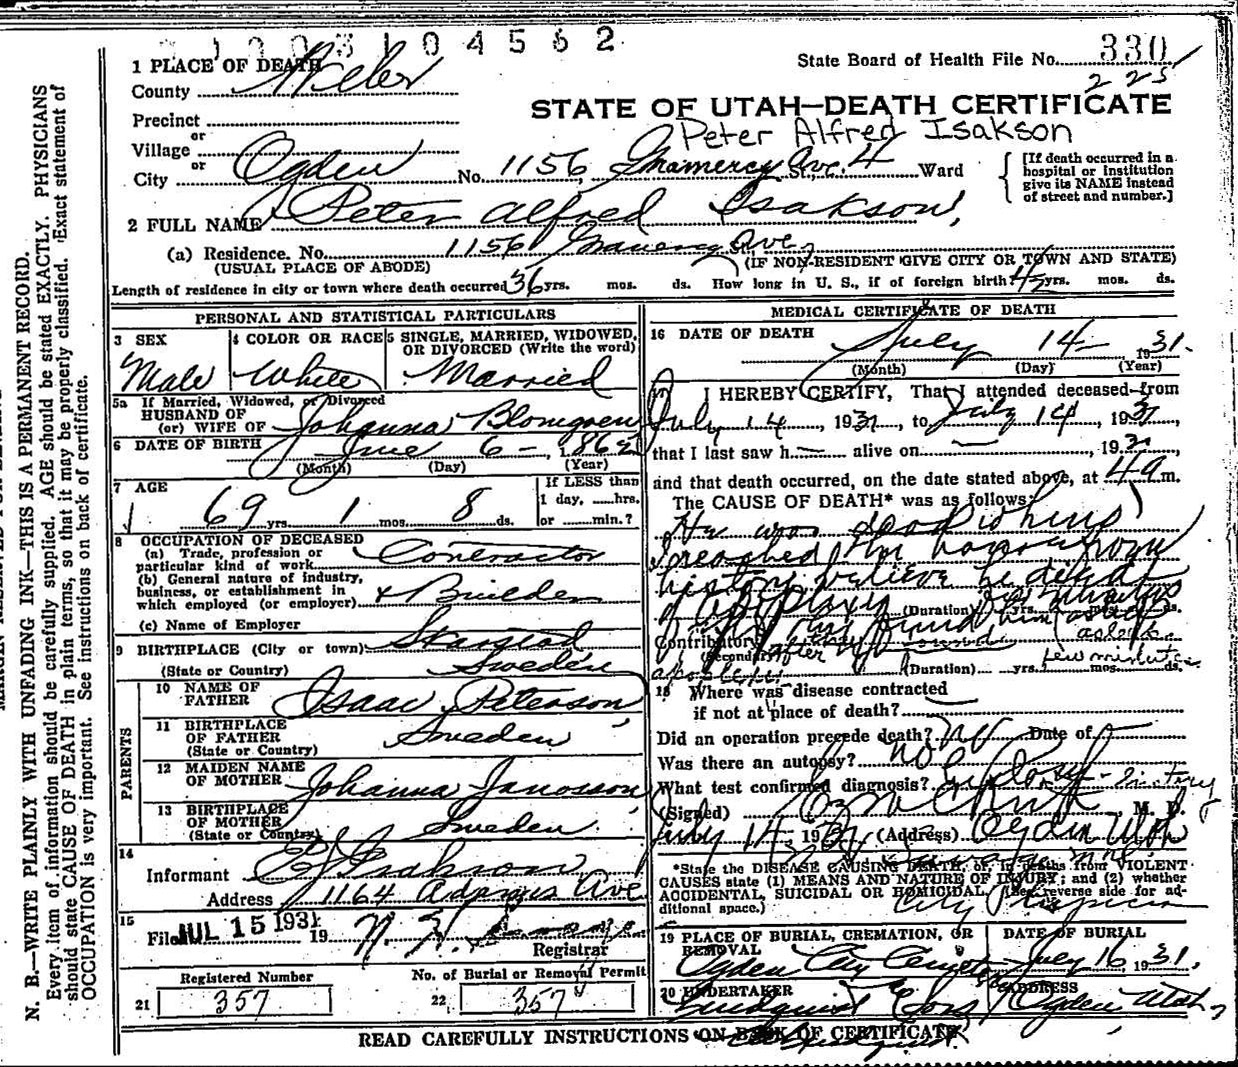 1003104562
State Board of Health File No. 330
225
1 PLACE OF DEATH
County Weber
STATE OF UTAH—DEATH CERTIFICATE
Precinct
Peter Alfred Isakson
or
Village
or
City Ogden No. 1156 Gramercy Ave. St., 4 Ward
[If death occurred in a hospital or institution give its NAME instead of street and number.]
2 FULL NAME Peter Alfred Isakson,
(a) Residence. No. 1156 Gramercy Ave,
(USUAL PLACE OF ABODE) (IF NON-RESIDENT GIVE CITY OR TOWN AND STATE)
Length of residence in city or town where death occurred 36 yrs. mos. ds. How long in U. S., if of foreign birth 42 yrs. mos. ds.
PERSONAL AND STATISTICAL PARTICULARS
3 SEX
Male
4 COLOR OR RACE
White
5 SINGLE, MARRIED, WIDOWED, OR DIVORCED (Write the word)
Married
5a If Married, Widowed, or Divorced
HUSBAND OF
(or) WIFE OF Johanna Blomgren
6 DATE OF BIRTH June 6 - 1862
(Month) (Day) (Year)
7 AGE
69 yrs. 1 mos. 8 ds.
If LESS than
1 day, ......hrs.
or ......min.?
8 OCCUPATION OF DECEASED
(a) Trade, profession or
particular kind of work Contractor
(b) General nature of industry,
business, or establishment in
which employed (or employer) & Builder
(c) Name of Employer
9 BIRTHPLACE (City or town)
(State or Country) Sweden
PARENTS
10 NAME OF FATHER Isaac Peterson
11 BIRTHPLACE OF FATHER
(State or Country) Sweden
12 MAIDEN NAME OF MOTHER Johanna Janosson
13 BIRTHPLACE OF MOTHER
(State or Country) Sweden
14
Informant Isakson
Address 1164 Adams Ave
15
Filed JUL 15 1931 19
Registrar
Registered Number
21 357
No. of Burial or Removal Permit
22 357
MEDICAL CERTIFICATE OF DEATH
16 DATE OF DEATH July 14 - 1931.
(Month) (Day) (Year)
17 I HEREBY CERTIFY, That I attended deceased from
July 14, 1931, to July 14, 1931,
that I last saw h— alive on —, 193
and that death occurred, on the date stated above, at 4 a m.
The CAUSE OF DEATH* was as follows:
He was dead when
I reached the home from
history believe he died
of
(Duration) yrs. mos. ds.
Contributory
(Secondary) after
apoplexy (Duration) yrs. few minutes mos. ds.
18 Where was disease contracted
if not at place of death?
Did an operation precede death? No Date of
Was there an autopsy? No
What test confirmed diagnosis? history
(Signed) M. D.
July 14, 1931 (Address) Ogden Utah
*State the DISEASE CAUSING DEATH, or in deaths from VIOLENT CAUSES state (1) MEANS AND NATURE OF INJURY; and (2) whether ACCIDENTAL, SUICIDAL OR HOMICIDAL. (See reverse side for additional space.)
City Physician
19 PLACE OF BURIAL, CREMATION, OR REMOVAL
Ogden City Cemetery
DATE OF BURIAL
July 16, 1931.
20 UNDERTAKER
Lindquist & Sons
ADDRESS
Ogden Utah,
READ CAREFULLY INSTRUCTIONS ON BACK OF CERTIFICATE
N. B.—WRITE PLAINLY WITH UNFADING INK—THIS IS A PERMANENT RECORD.
Every item of information should be carefully supplied. AGE should be stated EXACTLY. PHYSICIANS
should state CAUSE OF DEATH in plain terms, so that it may be properly classified. Exact statement of
OCCUPATION is very important. See instructions on back of certificate.